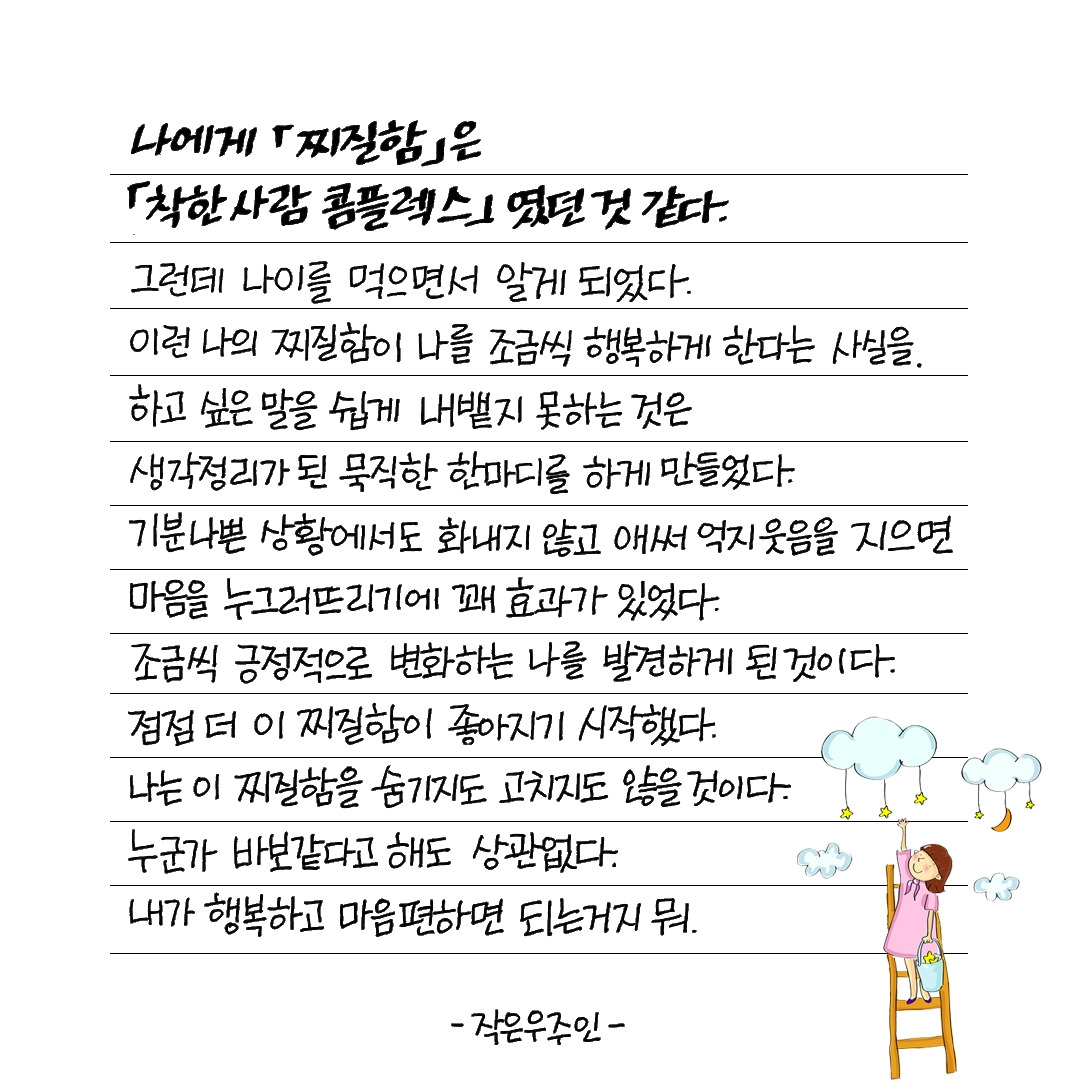 나에게 「찌질함」은
「착한 사람 콤플렉스」 였던 것 같다.
그런데 나이를 먹으면서 알게 되었다.
이런 나의 찌질함이 나를 조금씩 행복하게 한다는 사실을.
하고 싶은 말을 쉽게 내뱉지 못하는 것은
생각정리가 된 묵직한 한마디를 하게 만들었다.
기분나쁜 상황에서도 화내지 않고 애써 억지웃음을 지으면
마음을 누그러뜨리기에 꽤 효과가 있었다.
조금씩 긍정적으로 변화하는 나를 발견하게 된 것이다.
점점 더 이 찌질함이 좋아지기 시작했다.
나는 이 찌질함을 숨기지도 고치지도 않을 것이다.
누군가 바보같다고 해도 상관없다.
내가 행복하고 마음편하면 되는거지 뭐.
- 작은우주인 -